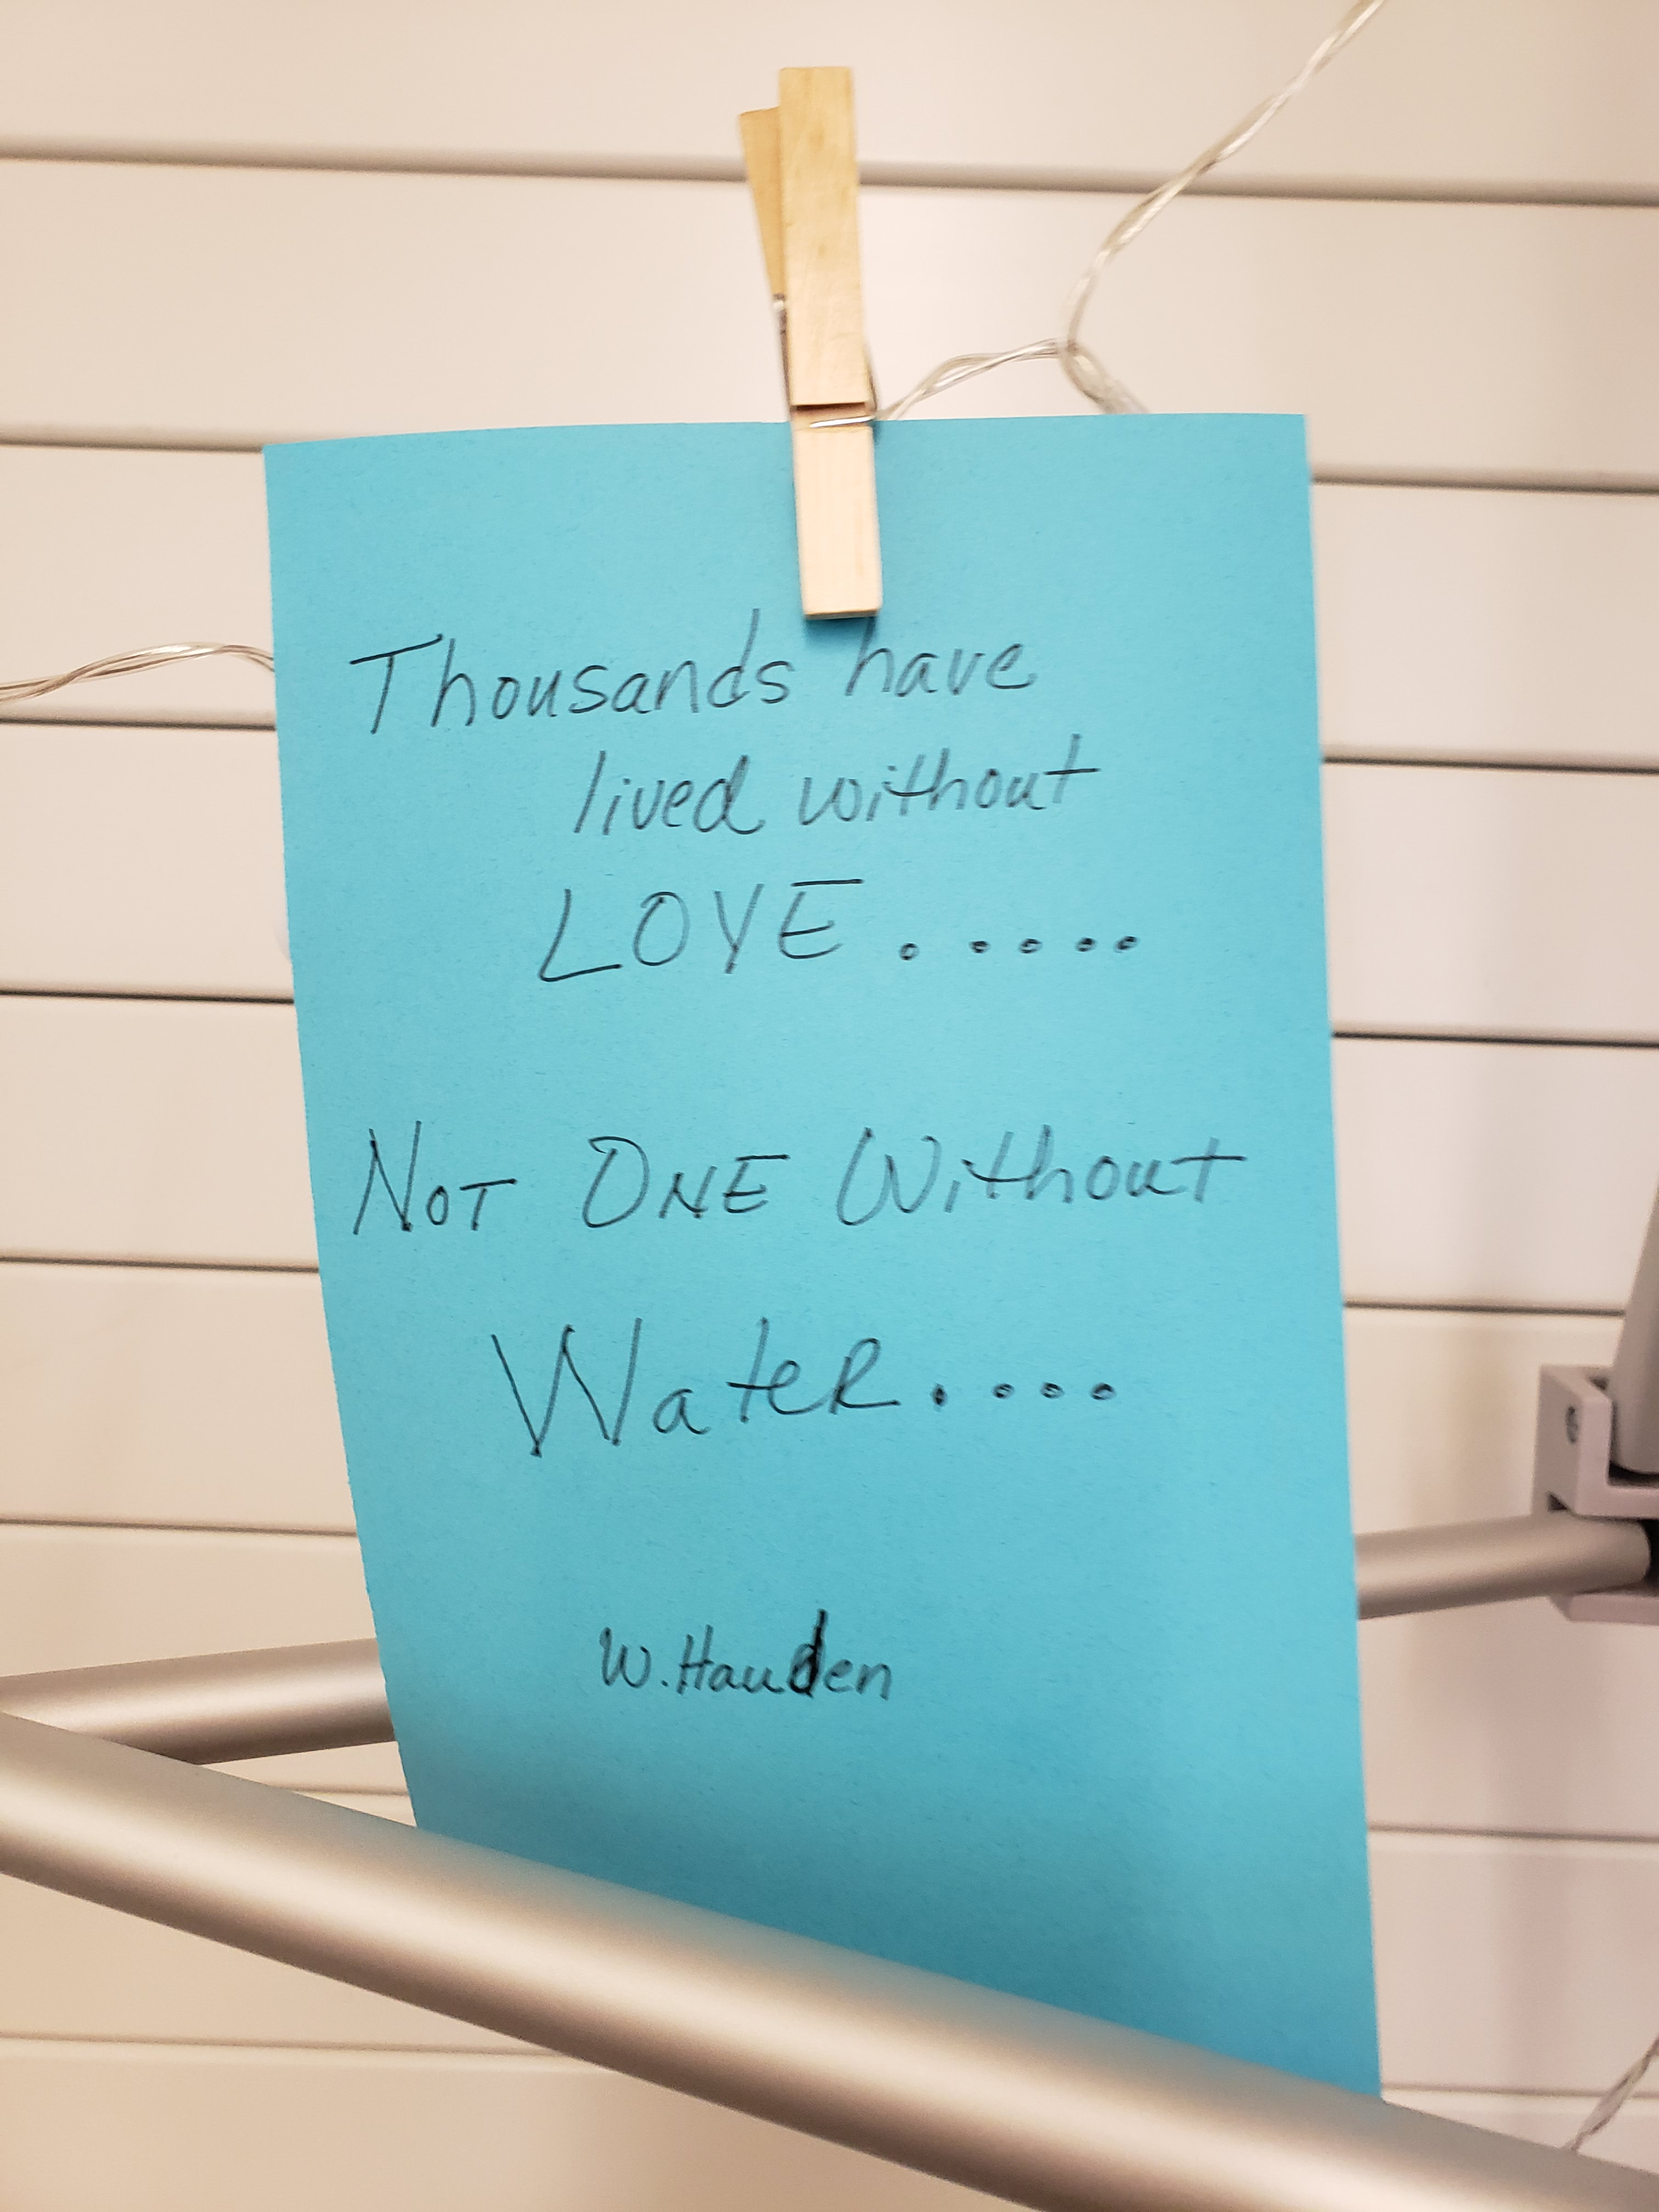 Thousands have
lived without
LOVE.....
NOT ONE Without
WateR....
W. Hauden